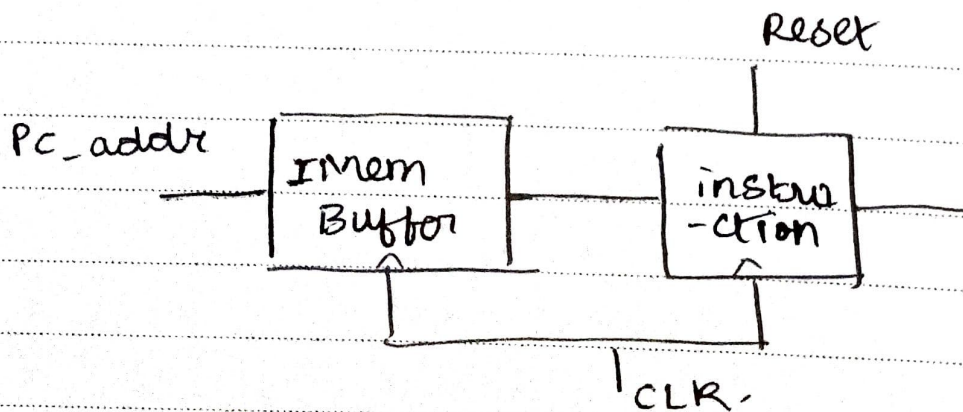 Reset
PC_addr
IMem
Buffer
instru
-ction
CLK.